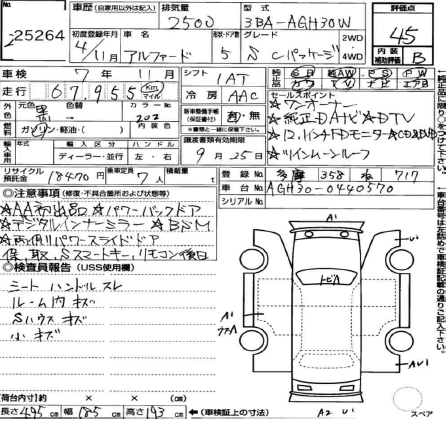 25264
車歴 (自家用以外は記入)
排気量 2500
型式 3BA-AGH30W
評価点 4.5
内装補助評価 B
初度登録年月 4/11月
車名 アルファード
形状・ドア数 5
グレード S Cパッケージ
2WD
4WD
車検 7年11月
シフト 1AT
純正品 SR AW PS PW
カワ TV ナビ エアB
走行 67,955 Km マイル
冷房 AAC
セールスポイント
☆ワンオーナー
☆純正DAナビ☆DTV
☆12.1インチFDモーター☆CD&DVD
☆ツインムーンルーフ
外色 元色 黒 色替
カラーNo 202
内装色
燃料 ガソリン・軽油・( )
新車整備手帳(保証書付) 有・無
※書類と一緒に保管して下さい。
輸入車用 年式 輸入区分 ハンドル
ディーラー・並行 左・右
譲渡書類有効期限
9月25日
リサイクル預託金 18470円
乗車定員 7人
積載量 t
登録No 多摩 358 ね 717
車台No AGH30-0440570
シリアルNo
◎注意事項 (修復・不具合箇所および状態等)
☆AA初出品☆パワーバックドア
☆デジタルインナーミラー☆BSM
☆両側パワースライドドア
保、取、Sスマートキー、リモコン後日
◎検査員報告 (USS使用欄)
シート ハンドル スレ
ルーム内 キズ
Sハウス キズ
小キズ
A1
U1
トビA
A1
A1
AU1
A2 U1
スペア
(荷台内寸)約 × × (cm)
長さ 495 cm 幅 185 cm 高さ 193 cm ←(車検証上の寸法)